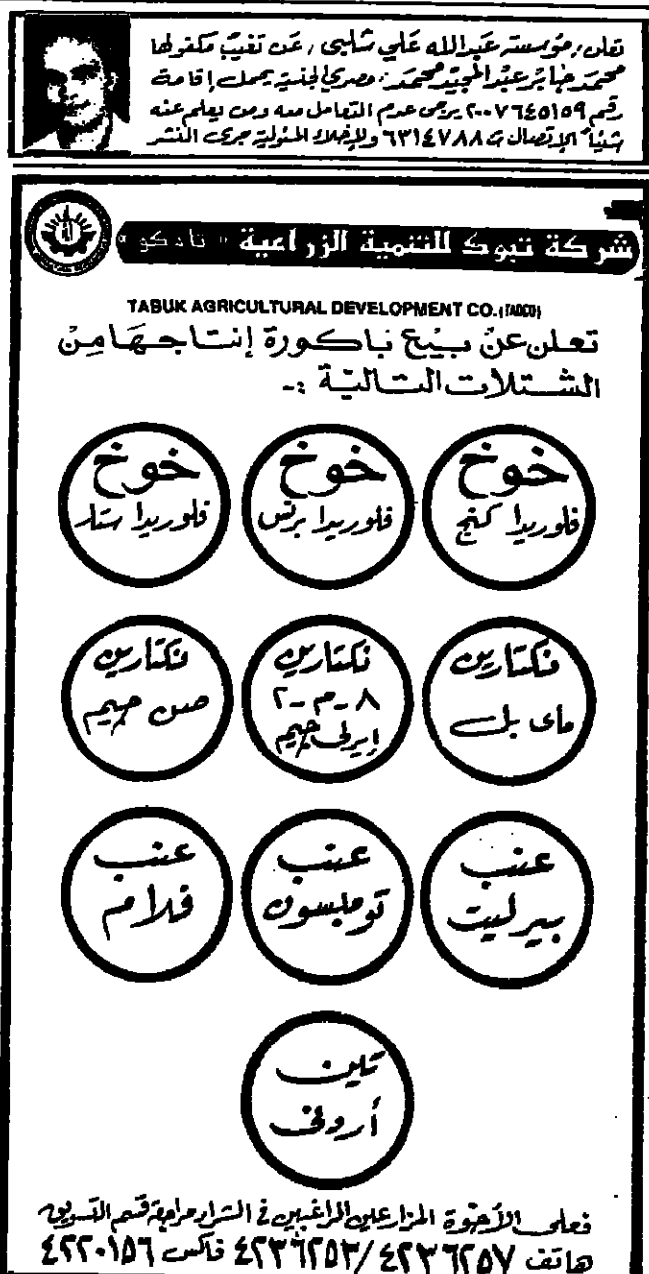 تعلن / مؤسسة عبدالله علي شلبي / عن تغيب مكفولها
محمد جابر عبدالمجيد محمد / مصري الجنسية يحمل إقامة
رقم ٢٠٠٧٦٤٥١٥٩ يرجى عدم التعامل معه ومن يعلم عنه
شيئاً الإتصال ت ٦٣١٤٧٨٨ ولإخلاء المسئولية جرى النشر
شركة تبوك للتنمية الزراعية " نادكو "
TABUK AGRICULTURAL DEVELOPMENT CO. (TADCO)
تعلن عن بيع باكورة إنتاجها من
الشتلات التالية :-
خوخ
فلوريدا كنج
خوخ
فلوريدا برنس
خوخ
فلوريدا ستار
نكتارين
ماى بل
نكتارين
٨ - م - ٢
إيرلى جيم
نكتارين
صن جيم
عنب
بيرليت
عنب
تومبسون
عنب
فلام
تين
أردنى
فعلى الأخوة المزارعين الراغبين في الشراء مراجعة قسم التسويق
هاتف ٤٢٣٦٢٥٧ / ٤٢٣٦٢٥٣ فاكس ٤٢٢٠١٥٦